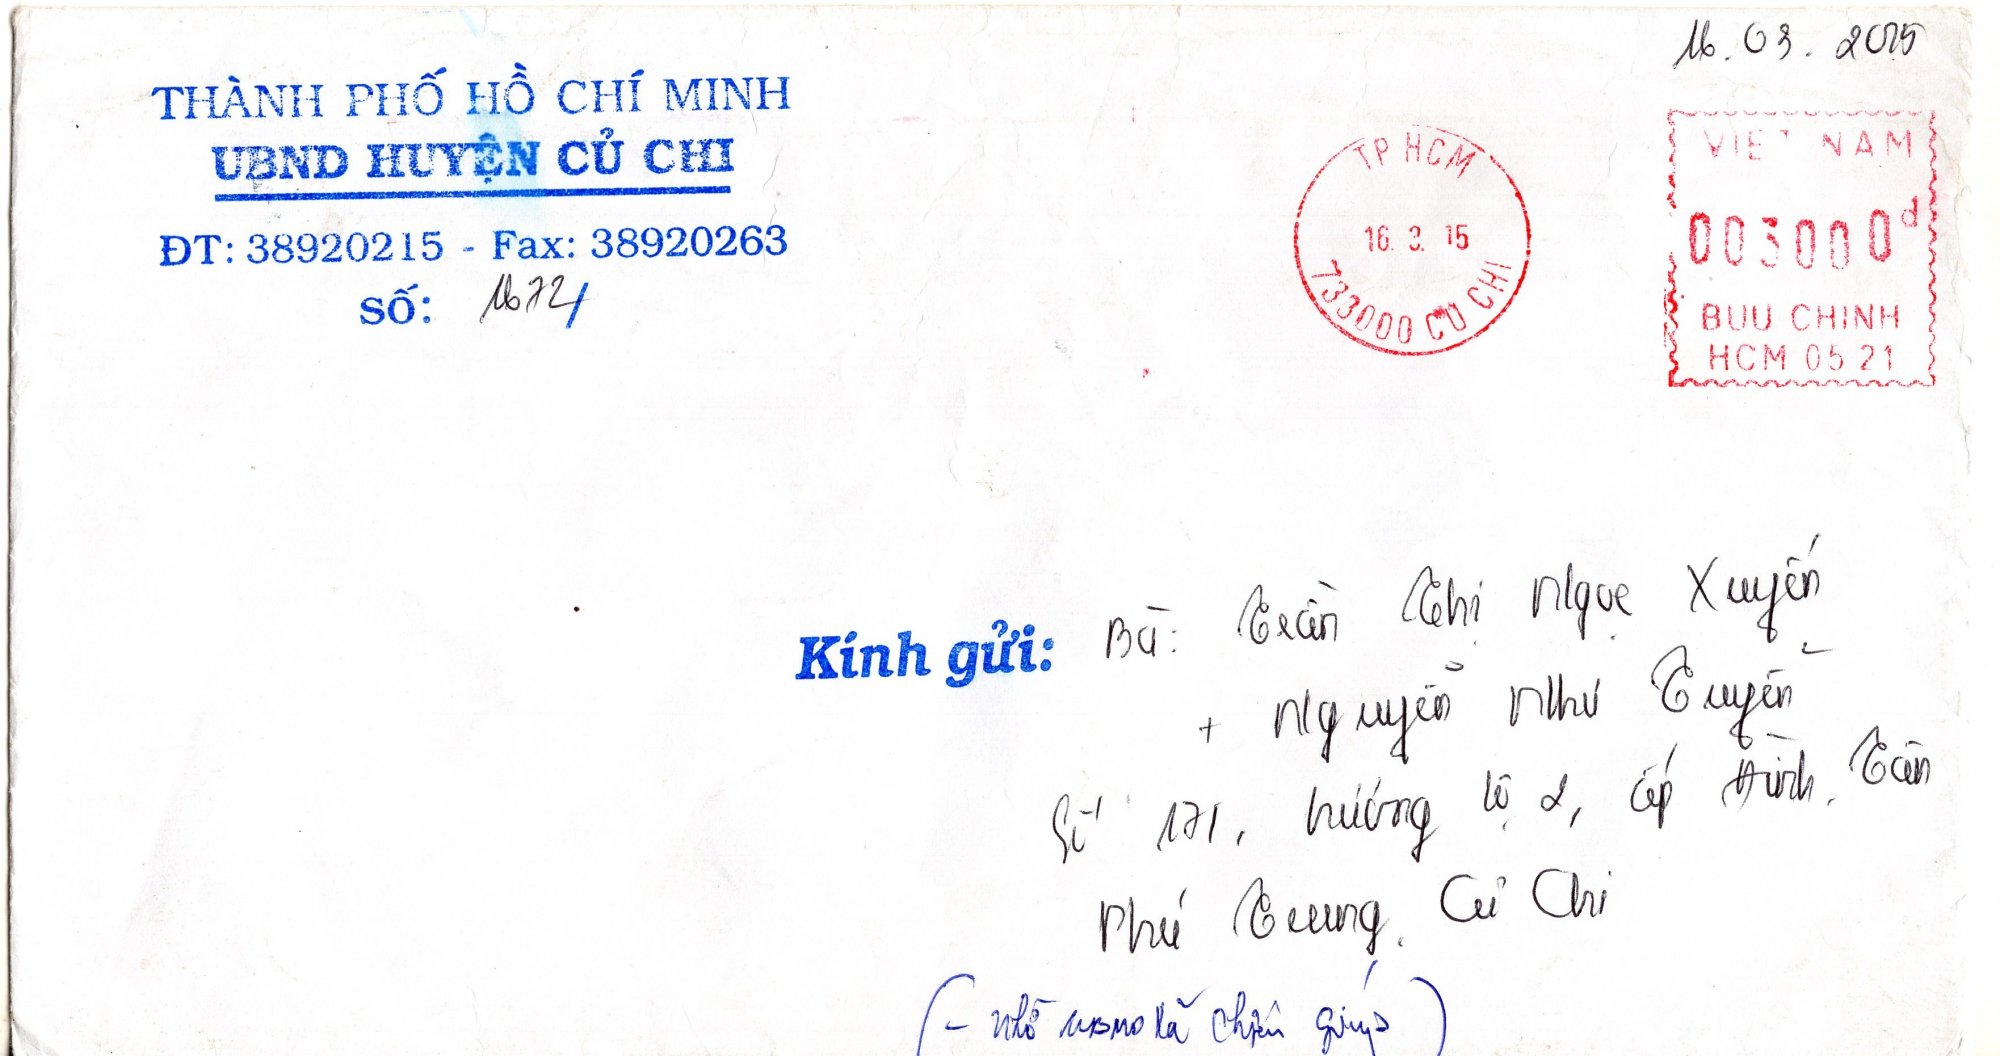 16.03.2015
THÀNH PHỐ HỒ CHÍ MINH
UBND HUYỆN CỦ CHI
ĐT: 38920215 - Fax: 38920263
SỐ: 1672/
TP HCM
16. 3. 15
733000 CU CHI
VIET NAM
003000đ
BUU CHINH
HCM 05 21
Kính gửi: Bà: Trần Thị Ngọc Xuyến
+ Nguyễn Như Tuyền
Số 171, hương lộ 2, ấp Đình, Tân
Phú Trung, Củ Chi
(- nhờ UBND xã chuyển giúp)